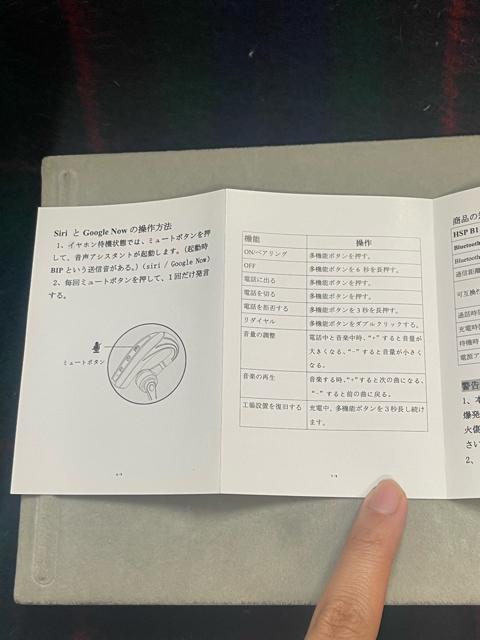 Siri と Google Now の操作方法
1、イヤホン待機状態では、ミュートボタンを押
して、音声アシスタントが起動します。（起動時
BIP という送信音がある。）（siri / Google Now）
2、毎回ミュートボタンを押して、1回だけ発言
する。
ミュートボタン
機能 操作
ON/ペアリング 多機能ボタンを押す。
OFF 多機能ボタンを 6 秒を長押す。
電話に出る 多機能ボタンを押す。
電話を切る 多機能ボタンを押す。
電話を拒否する 多機能ボタンを3秒を長押す。
リダイヤル 多機能ボタンをダブルクリックする。
音量の調整 電話中と音楽中時、"+"すると音量が
大きくなる、"-"すると音量が小さく
なる。
音楽の再生 音楽する時、"+"すると次の曲になる、
"-"すると前の曲に戻る。
工場設置を復旧する 充電中、多機能ボタンを3秒長し続け
ます。
商品の
HSP B1
Bluetooth
Bluetoo
通信距離
可互換性
通話時
充電時
待機時
電源ア
警告
1、本
爆発
火傷
さい
2、